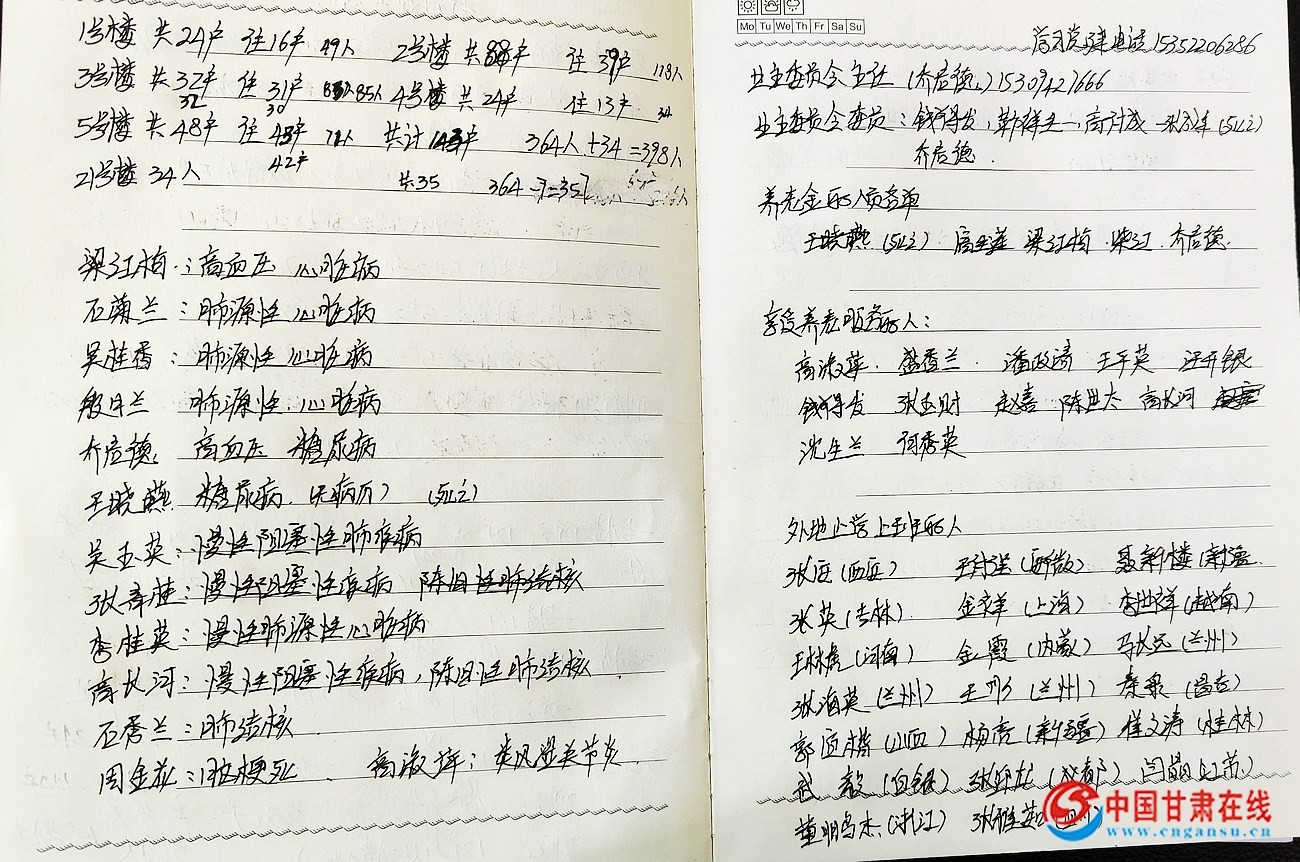 1号楼 共24户 住16户 49人 2号楼 共88户 住39户 118人
3号楼 共32户 住31户 85人 4号楼 共24户 住13户 34
32 30
5号楼 共48户 住45户 71人 共计 364人+34=398人
42户
21号楼 34人 共35 364-7=357
梁红梅：高血压 心脏病
石菊兰：肺源性 心脏病
吴桂香：肺源性 心脏病
殷月兰 肺源性 心脏病
乔彦德 高血压 糖尿病
王晓燕 糖尿病（无病历）
吴玉英：慢性阻塞性肺疾病
慢性阻塞性疾病 陈旧性肺结核
李桂英：慢性肺源性心脏病
高长河：慢性阻塞性疾病，陈旧性肺结核
石香兰：肺结核
周金花：脑梗死 类风湿关节炎
Mo Tu We Th Fr Sa Su
电话 15352206286
业主委员会主任（乔彦德）15309421666
业主委员会委员：钱得发，
乔彦德
养老金的人员名单
王晓燕 梁红梅 柴红 乔彦德
享受养老服务的人：
高淑英 盛香兰 潘政清 王平英 汪开银
钱得发 张玉财 赵喜 陈世太 高长河
沈生兰 何秀英
外地上学上班的人
（西安） 聂新楼（新疆
张英（吉林） 金文祥（上海） 李世祥（越南）
王林虎（河南） 金霞（内蒙） 马长远（兰州）
张海英（兰州） 王刚（兰州） 秦泉（昌吉）
（山西） 杨亮（新疆） 崔文涛（桂林）
武毅（白银） （成都） （江苏）
（浙江）
中国甘肃在线
www.cngansu.cn